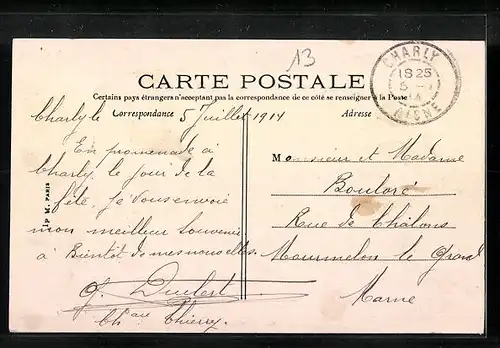 13
CHARLY
18 25
5
14
AISNE
CARTE POSTALE
Certains pays étrangers n'acceptant pas la correspondance de ce côté se renseigner à la Poste
Correspondance
Adresse
Charly le 5 Juillet 1914
En promenade à
Charly, le jour de la
fête, je vous envoie
mon meilleur souvenir
à Bientôt de mes nouvelles
Chau Thierry
IP M. PARIS
Monsieur et Madame
Boularc
Rue de Châlons
Mourmelon le Grand
Marne